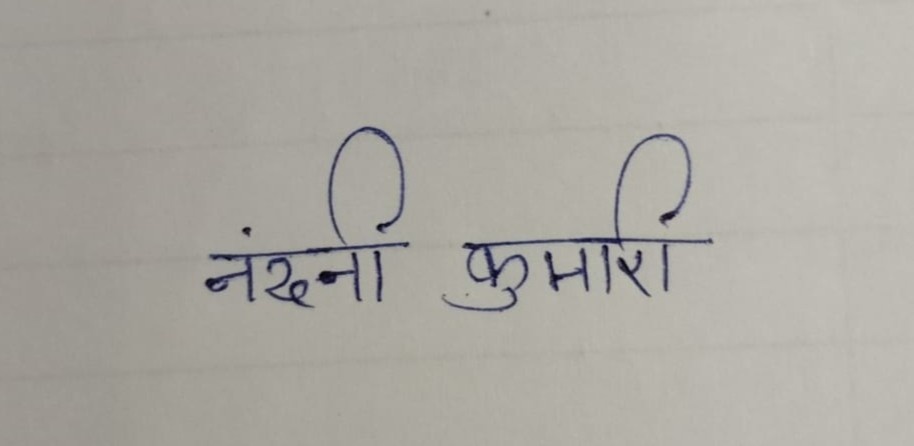 नंदनी कुमारी